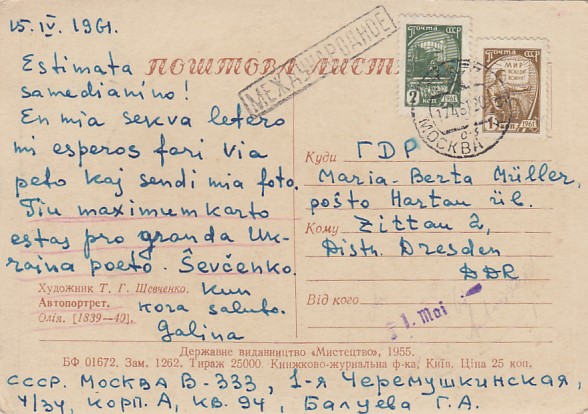 15. IV. 1961.
ПОШТОВА ЛИСТ
МЕЖДУНАРОДНОЕ
ПОЧТА СССР
2 коп 1961
ПОЧТА СССР
МИР
1961
МОСКВА
Estimata
samedianino!
En mia sekva letero
mi esperos fari via
peto kaj sendi mia foto.
Tiu maximumkarto
estas pro granda Uk-
raina poeto. Ševčenko.
kun
kora saluto.
Galina
Художник Т. Г. Шевченко.
Автопортрет.
Олія. [1839—40].
Куди ГДР
Maria-Berta Müller,
poŝto Hartau üb.
Кому Zittau 2,
Distr. Dresden
DDR
Від кого
1. Mai
Державне видавництво «Мистецтво», 1955.
БФ 01672. Зам. 1262. Тираж 25000. Книжково-журнальна ф-ка, Київ. Ціна 25 коп.
СССР. МОСКВА В-333, 1-я Черемушкинская,
4/34, корп. А, кв. 94, Балуева Г. А.